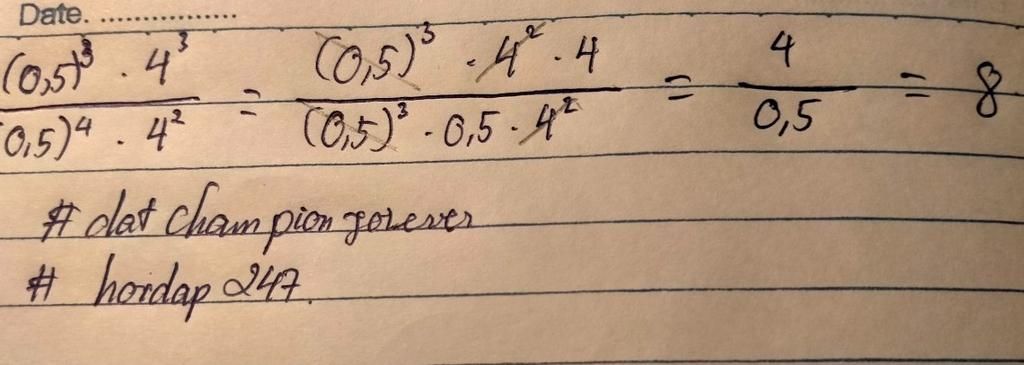 Date. ................
(0,5)³ . 4³ / (0,5)⁴ . 4² = (0,5)³ . 4² . 4 / (0,5)³ . 0,5 . 4² = 4 / 0,5 = 8
# dat Champion forever
# hoidap 247.